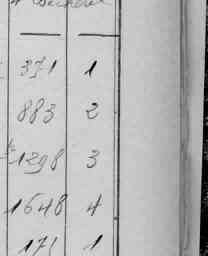 371 1
883 2
1298 3
1648 4
171 1